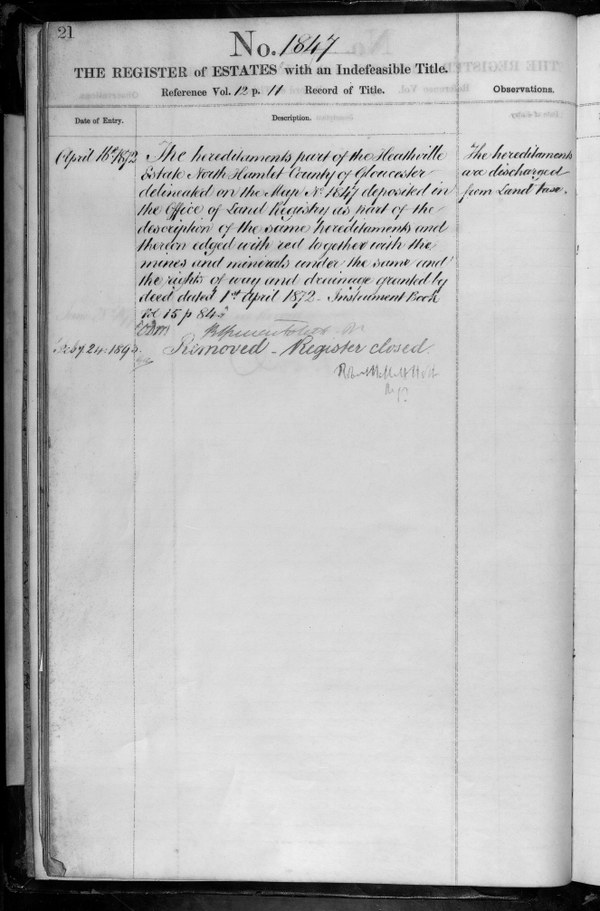 21
No. 1847
THE REGISTER of ESTATES with an Indefeasible Title.
Reference Vol. 12 p. 11 Record of Title.
Observations.
Date of Entry.
Description.
April 16th 1872
The hereditaments part of the Heathville
Estate North Hamlet County of Gloucester
delineated on the Map No 1847 deposited in
the Office of Land Registry as part of the
description of the same hereditaments and
thereon edged with red together with the
mines and minerals under the same and
the rights of way and drainage granted by
deed dated 1st April 1872 - Instrument Book
15 p 84
The hereditaments
are discharged
from Land Tax.
24. 189
Removed - Register closed.
Robert Holt